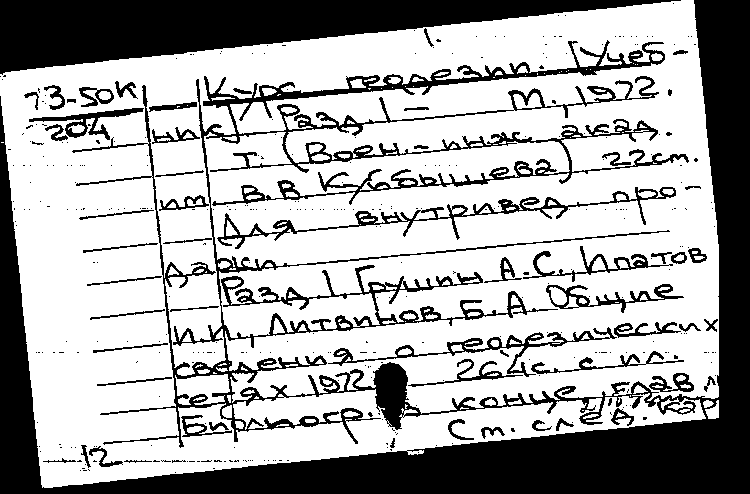 73-50К Курс геодезии. [Учеб-
204 ник]. Разд. 1 - М., 1972.
т. (Воен.-инж. акад.
им. В.В. Куйбышева). 22см.
Для внутривед. про-
дажи.
Разд. 1. Грушин А.С., Ипатов
И.И., Литвинов, Б.А. Общие
сведения о геодезических
сетях. 1972. 264с. с ил.
Библиогр. в конце глав
См. след. кар
12